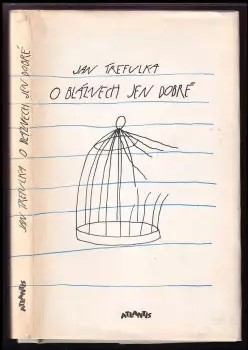 JAN TREFULKA O BLÁZNECH JEN DOBRÉ
ATLANTIS
JAN TREFULKA
O BLÁZNECH JEN DOBRÉ
ATLANTIS